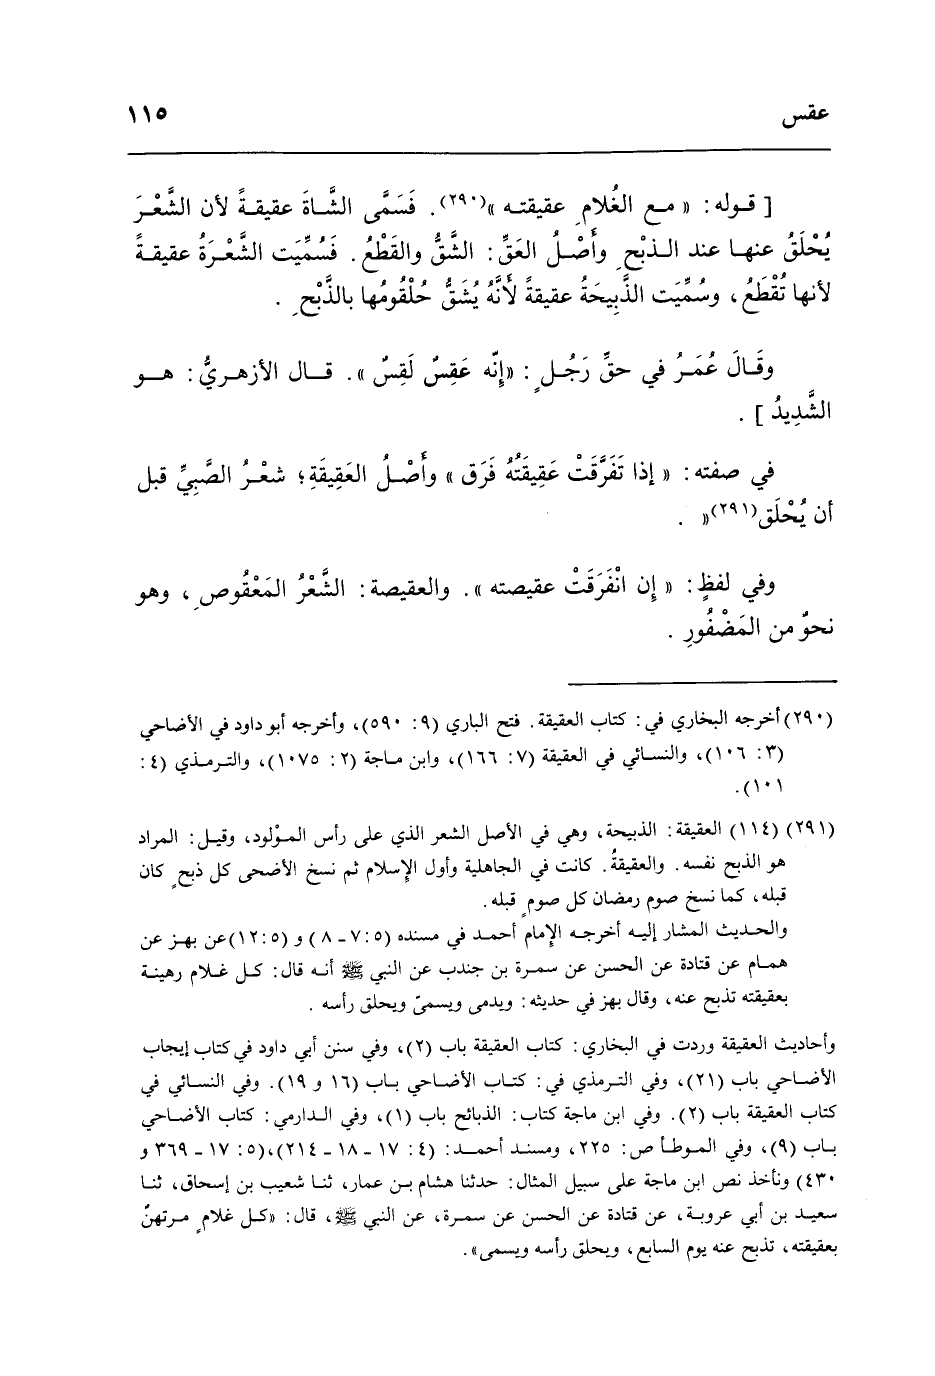 عقس ١١٥
[ قـوله: « مـع الغُلامِ عقيقتـه »(٢٩٠). فَسَمَّى الشَّـاةَ عقيقـةً لأن الشَّعْـرَ
يُحْلَقُ عنهـا عند الـذبْحِ وأَصْـلُ العَقِّ: الشَّقُّ والقَطْعُ. فَسُمِّيَت الشَّعْـرَةُ عقيقـةً
لأنها تُقْطَعُ، وسُمِّيَت الذَّبِيحَةُ عقيقةً لأَنَّهُ يُشَقُّ حُلْقُومُها بالذَّبْحِ .
وقَـالَ عُمَـرُ في حقِّ رَجُـلٍ: «إنّه عَقِسٌ لَقِسٌ». قـال الأزهـريُّ: هـو
الشَّدِيدُ ] .
في صفته: « إذا تَفَرَّقَتْ عَقِيقَتُهُ فَرَق » وأَصْـلُ العَقِيقَةِ؛ شعْـرُ الصَّبِيِّ قبل
أن يُحْلَق(٢٩١)» .
وفي لفظٍ: « إن انْفَرَقَتْ عقيصته ». والعقيصة: الشَّعْرُ المَعْقُوصِ، وهو
نحوٌ من المَضْفُورِ .
(٢٩٠) أخرجه البخاري في: كتاب العقيقة. فتح الباري (٩: ٥٩٠)، وأخرجه أبو داود في الأضاحي
(٣: ١٠٦)، والنسـائي في العقيقة (٧: ١٦٦)، وابن مـاجة (٢: ١٠٧٥)، والترمـذي (٤:
١٠١).
(٢٩١) (١١٤) العقيقة: الذبيحة، وهي في الأصل الشعر الذي على رأس المـوْلود، وقيـل: المراد
هو الذبح نفسه. والعقيقةُ. كانت في الجاهلية وأول الإسلام ثم نسخ الأضحى كل ذبحٍ كان
قبله، كما نسخ صوم رمضان كل صومٍ قبله.
والحـديث المشـار إليـه أخرجـه الإمام أحمـد في مسنده (٥: ٧ـ ٨) و (٥: ١٢) عن بهـز عن
همـام عن قتادة عن الحسن عن سمرة بن جندب عن النبي ﷺ أنـه قال: كـل غـلام رهينـة
بعقيقته تذبح عنه، وقال بهز في حديثه: ويدمى ويسمىّ ويحلق رأسه .
وأحاديث العقيقة وردت في البخاري: كتاب العقيقة باب (٢)، وفي سنن أبي داود في كتاب إيجاب
الأضـاحي باب (٢١)، وفي الترمذي في: كتـاب الأضـاحي بـاب (١٦ و ١٩). وفي النسائي في
كتاب العقيقة باب (٢). وفي ابن ماجة كتاب: الذبائح باب (١)، وفي الـدارمي: كتاب الأضـاحي
بـاب (٩)، وفي المـوطـأ ص: ٢٢٥، ومسنـد أحمـد: (٤: ١٧ ـ ١٨ ـ ٢١٤)،(٥: ١٧ ـ ٣٦٩ و
٤٣٠) ونأخذ نص ابن ماجة على سبيل المثال: حدثنا هشام بـن عمار، ثنـا شعيب بن إسحاق، ثنـا
سعيـد بن أبي عروبـة، عن قتادة عن الحسن عن سمـرة، عن النبي ﷺ، قال: «كـل غلامٍ مـرتهنٌ
بعقيقته، تذبح عنه يوم السابع، ويحلق رأسه ويسمى».